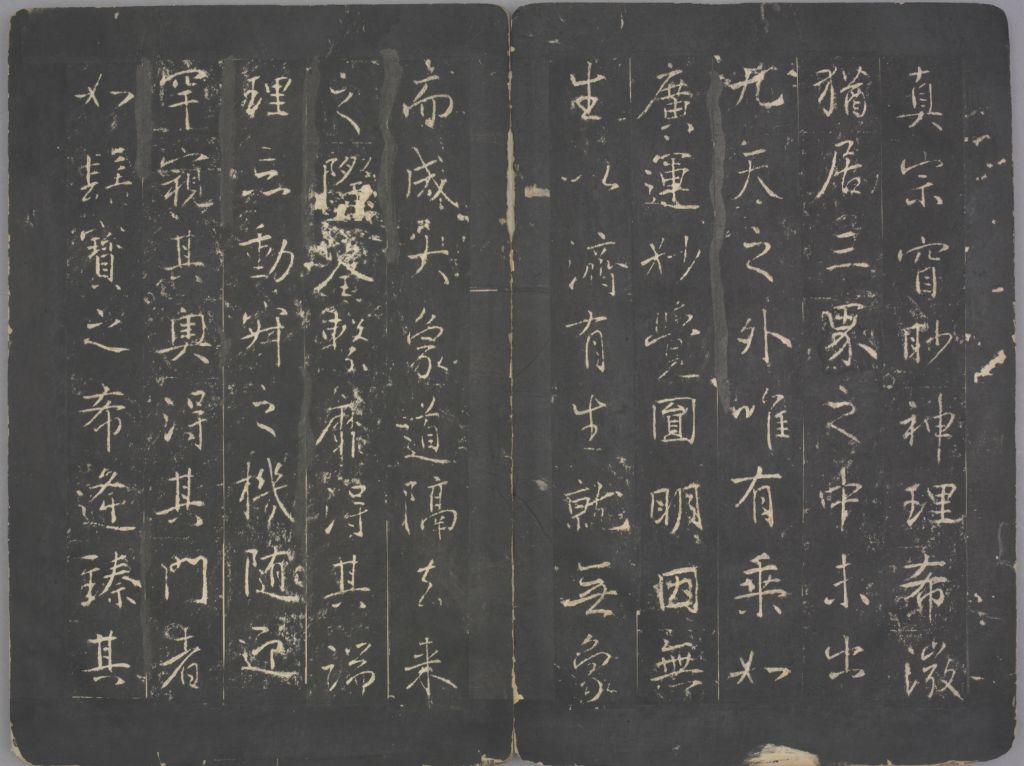 真宗窅眇神理希微
猶居三界之中未出
九天之外唯有乘如
廣運妙覺圓明因無
生以濟有生就無象
而成大象道隔去来
之際筌繫靡得其端
理忘動寂之機随迎
罕窺其奧得其門者
如髻寶之希逢臻其